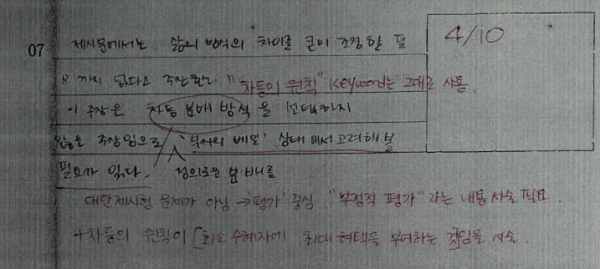 07 제시문에서는 삶의 방식의 차이를 굳이 조정할 필 4/10
요까지 없다고 주장한다. "차등의 원칙" keyword는 그대로 사용.
이 주장은 차등 분배 방식을 반대하지
않은 주장임으로 '무지의 베일' 상태에서 고려해 볼
필요가 있다. 정의로운 분배를
대안제시형 문제가 아님 → '평가' 중심. "부정적 평가" 라는 내용 서술 필요.
+ 차등의 원칙이 [최소 수혜자에 최대 혜택을 부여하는 것]임을 서술.